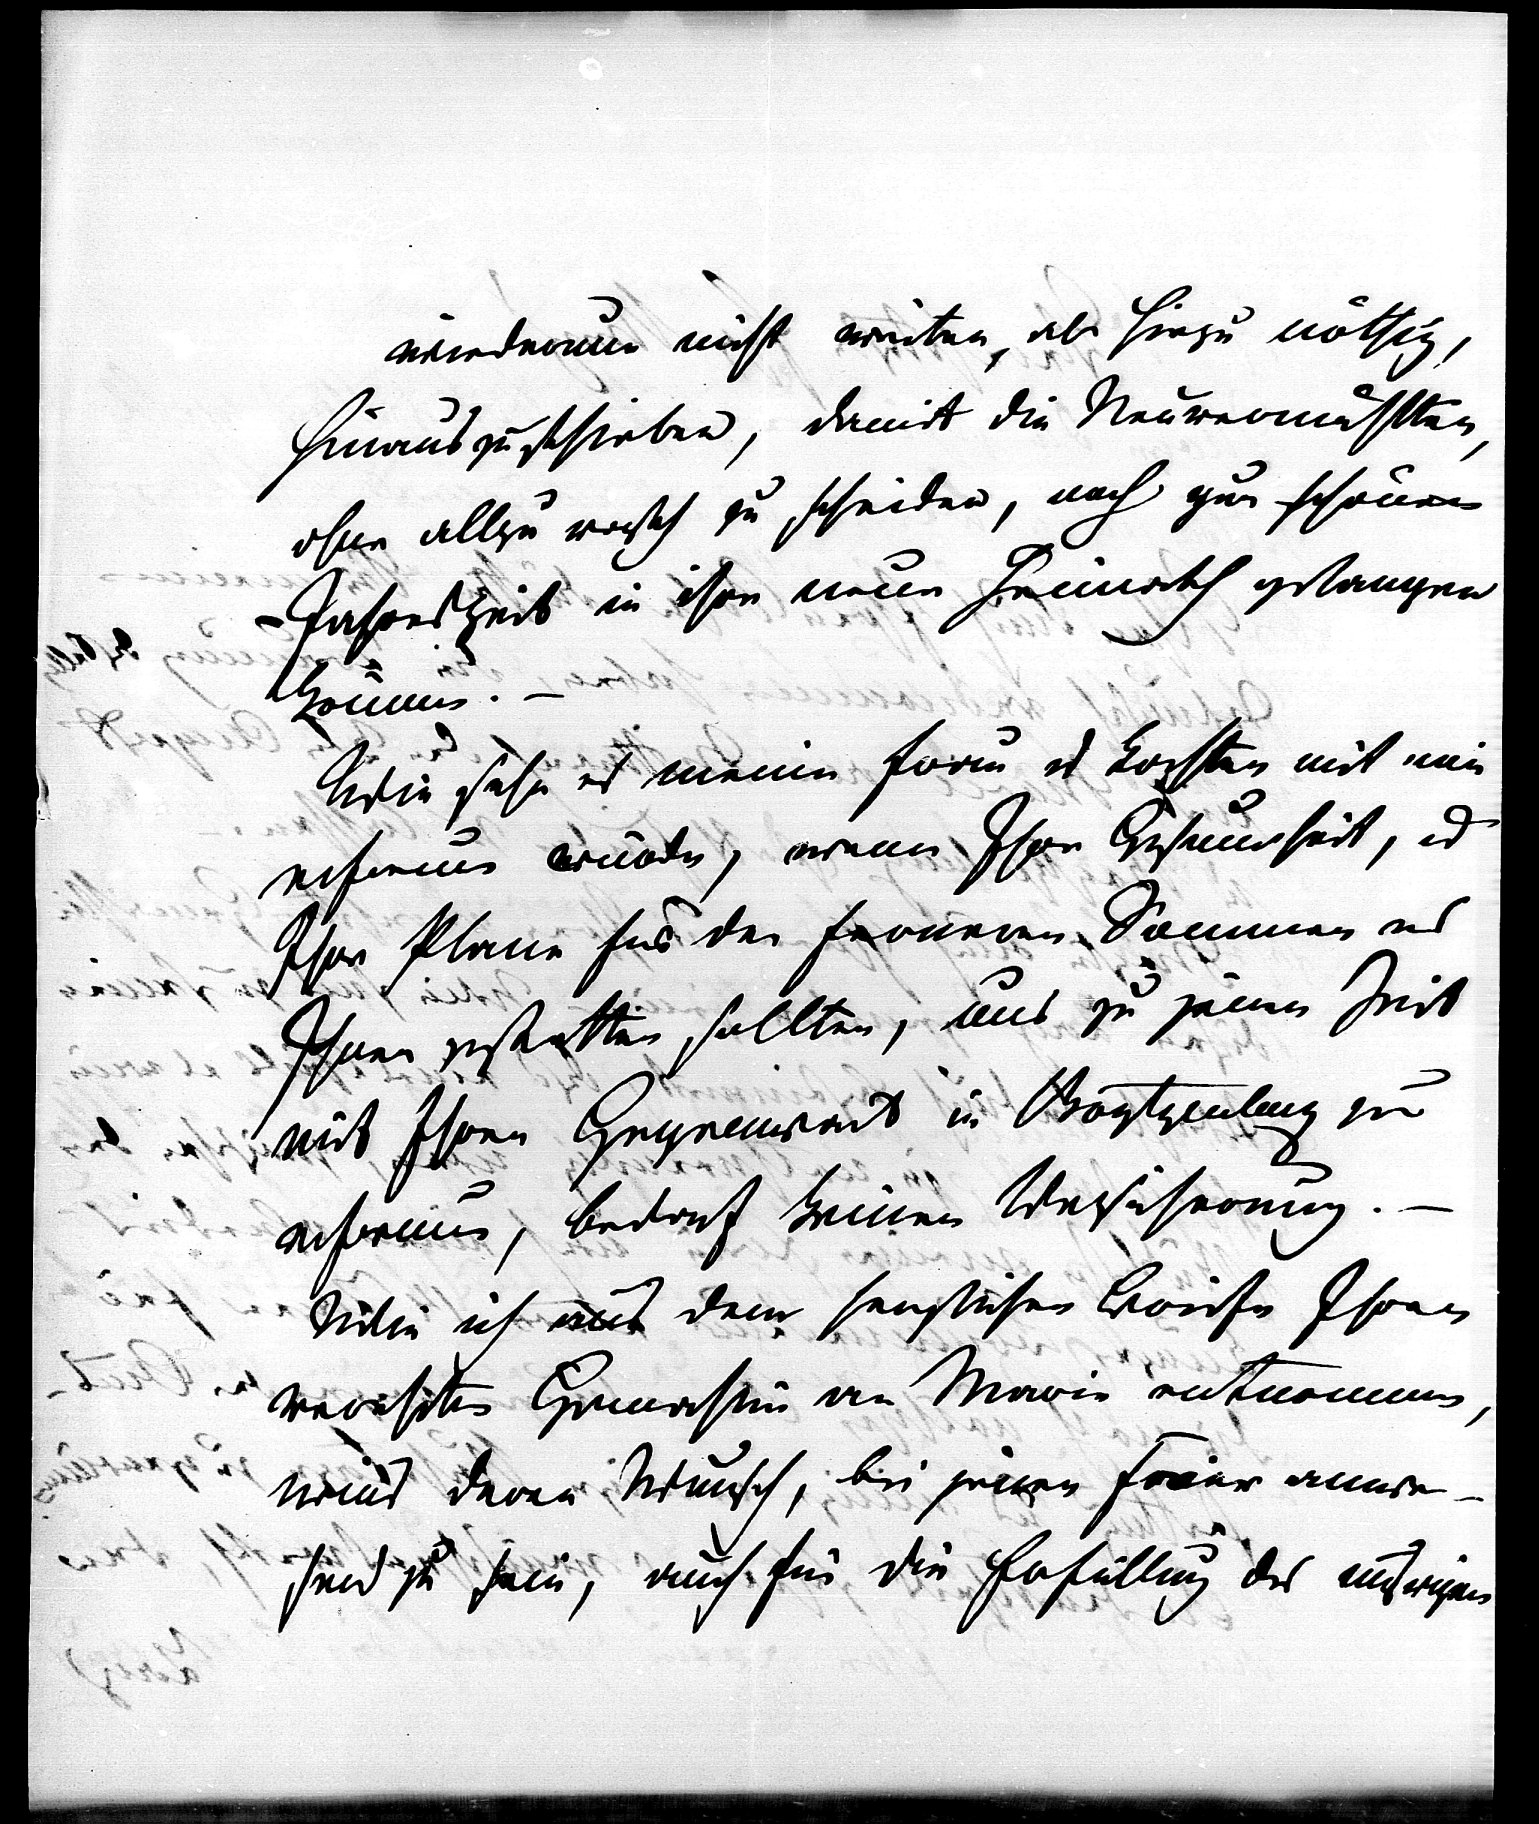 wiederum nicht weiter, als hiezu nöthig,
hinauszuschieben, damit die Neuvermählten,
ohne allzu rasch zu scheiden, noch zur schönen
Jahreszeit in ihre neue Heimath gelangen
können. –
Wie sehr es meine Frau u
erfreuen würde, wenn Ihre Gesundheit, u
Ihre Plane für den ferneren Sommer es
Ihnen gestatten sollten, uns zu jener Zeit
mit Ihrer Gegenwart in Boytzenburg zu
erfreuen, bedarf keiner Versicherung. –
Wie ich aus dem herzlichen Briefe Ihrer
verehrten Gemahlin an Marie entnommen,
wird deren Wunsch, bei jener Feier anwe-
send zu sein, auch für die Erfüllung des unsrigen